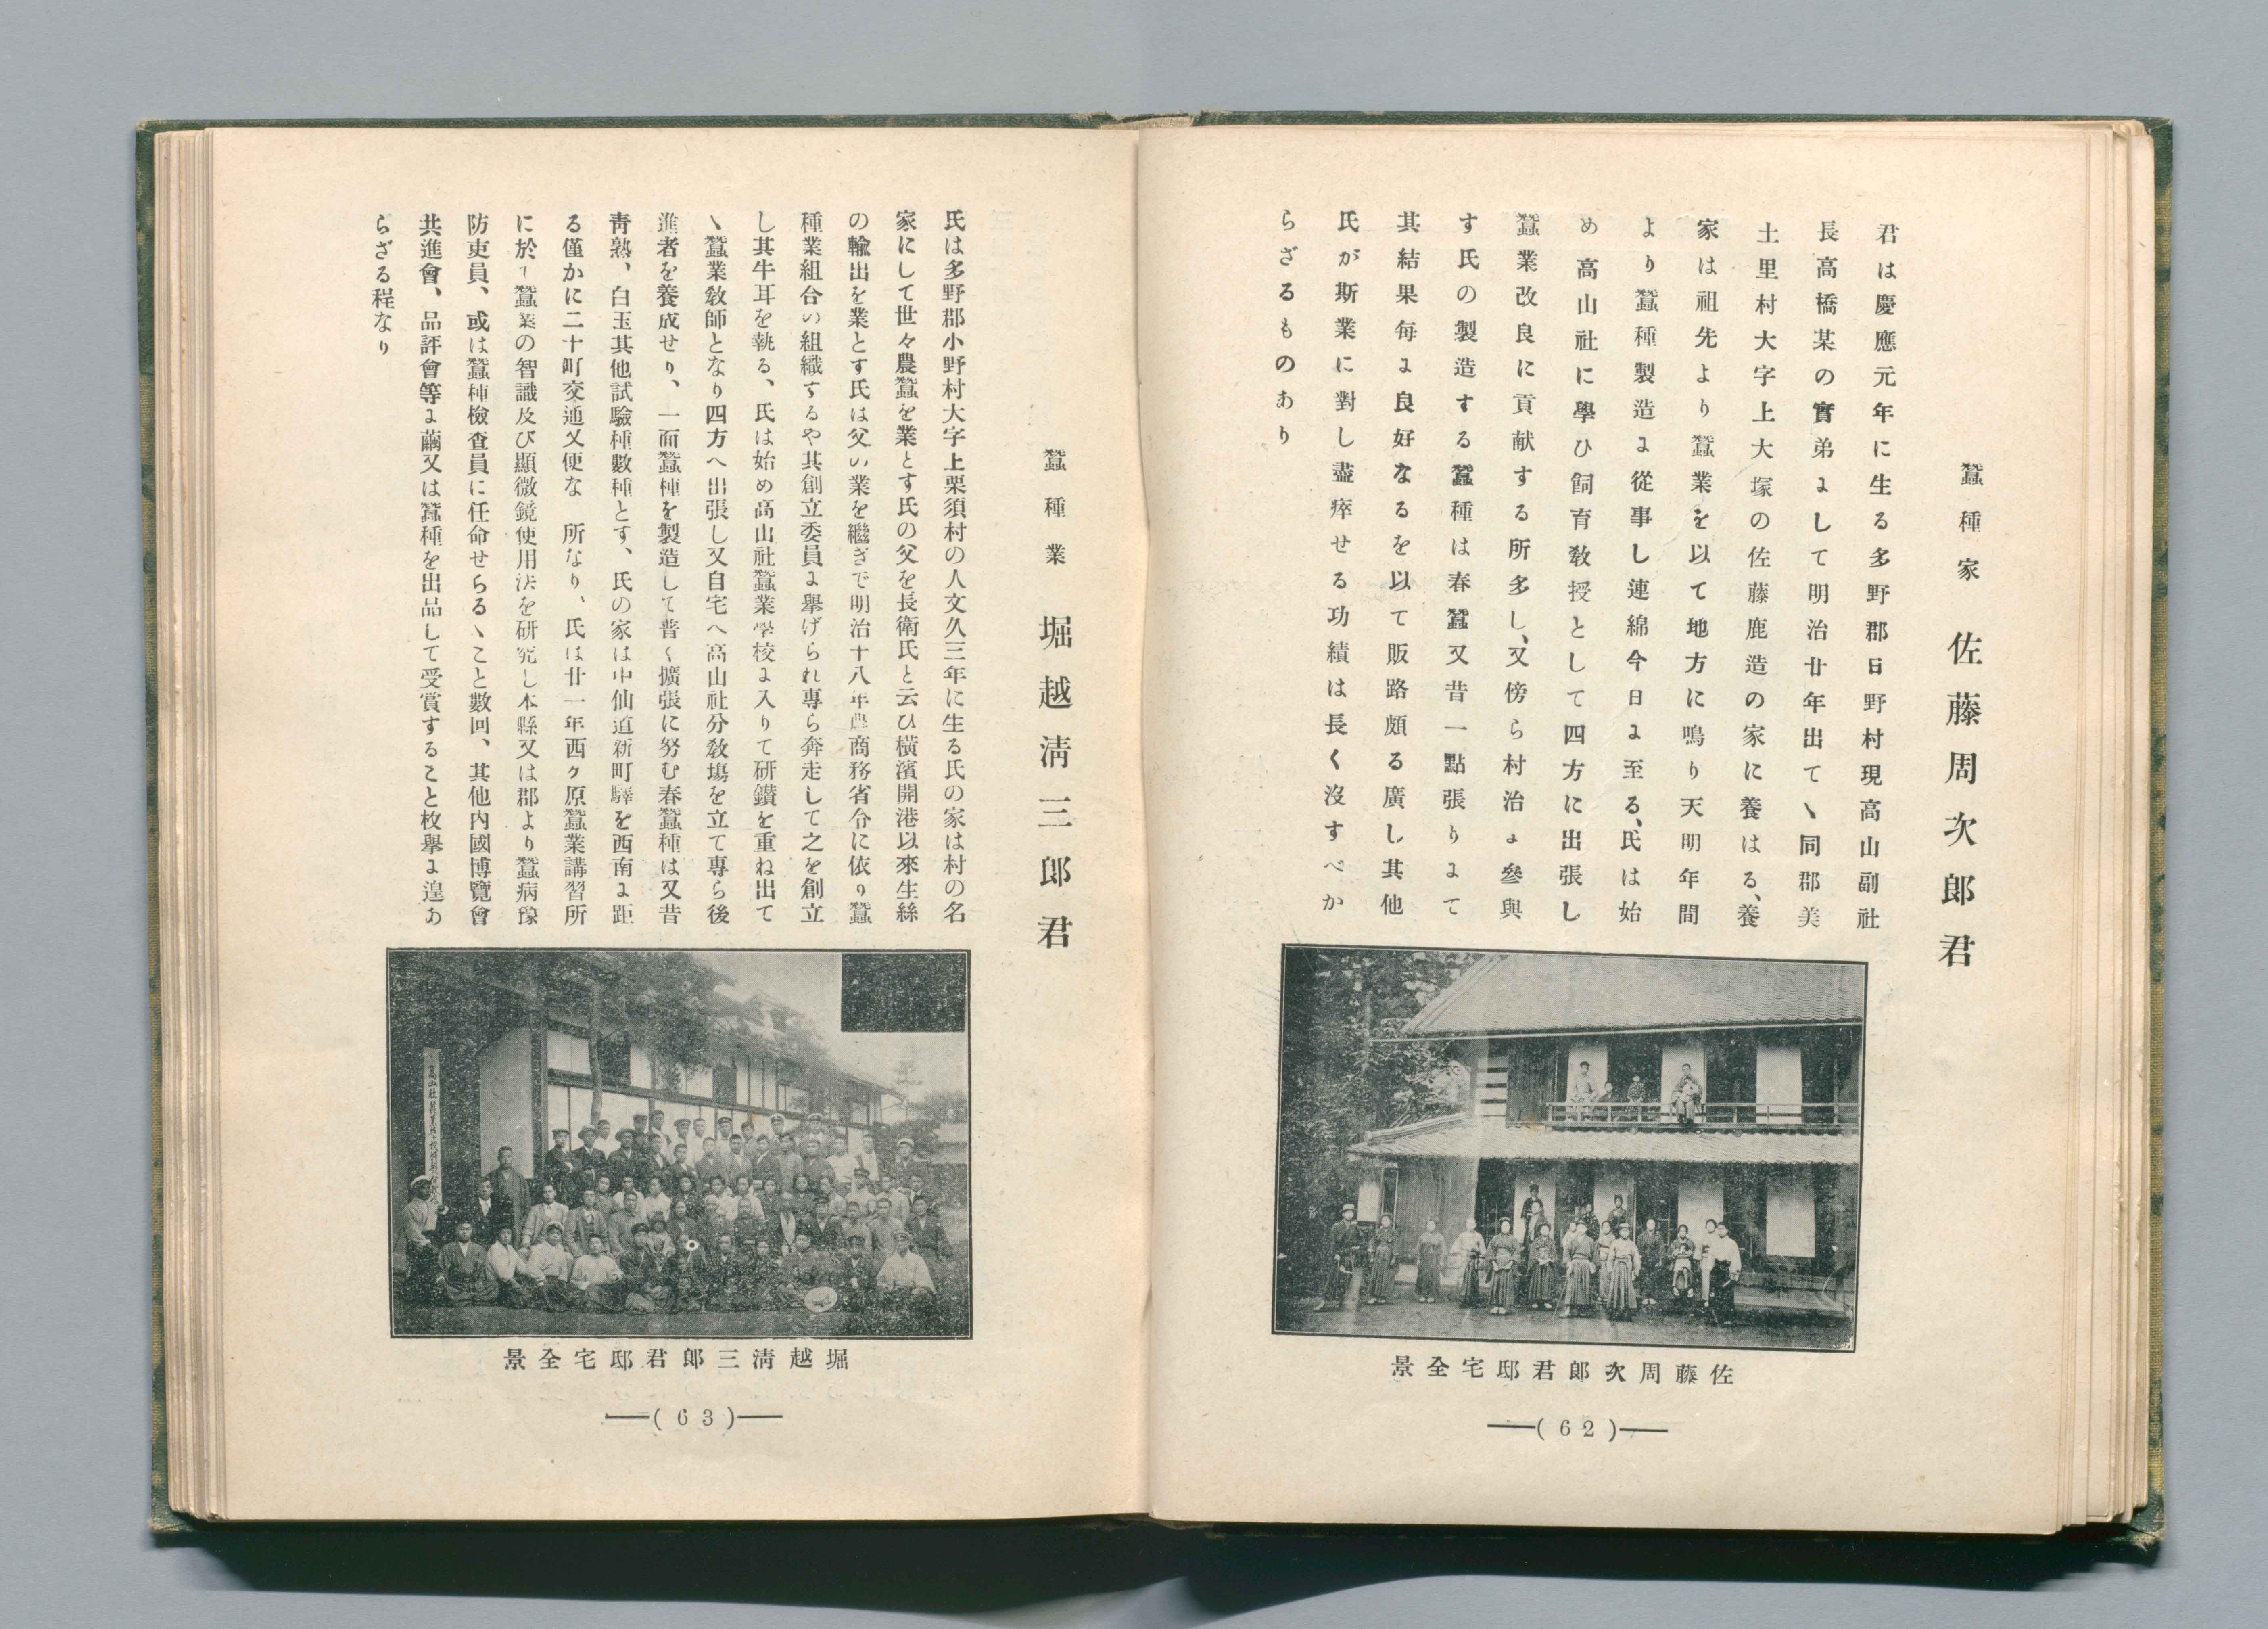 蠶種家　佐藤周次郎君
君は慶應元年に生る多野郡日野村現高山副社
長高橋某の實弟ょして明治廿年出てゝ同郡美
土里村大字上大塚の佐藤鹿造の家に養はる、養
家は祖先より蠶業を以て地方に鳴り天明年間
より蠶種製造ょ從事し連綿今日ょ至る、氏は始
め高山社に學ひ飼育教授として四方に出張し
蠶業改良に貢献する所多し、又傍ら村治ょ參與
す氏の製造する蠶種は春蠶又昔一點張りょて
其結果毎ょ良好なるを以て販路頗る廣し其他
氏が斯業に對し盡瘁せる功績は長く沒すべか
らざるものあり
佐藤周次郎君邸宅全景
—(62)—
蠶種業　堀越淸三郎君
氏は多野郡小野村大字上栗須村の人文久三年に生る氏の家は村の名
家にして世々農蠶を業とす氏の父を長衛氏と云ひ横濱開港以來生絲
の輸出を業とす氏は父の業を繼ぎで明治十八年農商務省令に依り蠶
種業組合の組織するや其創立委員ょ擧げられ専ら奔走して之を創立
し其牛耳を執る、氏は始め高山社蠶業學校ょ入りて研鑚を重ね出て
ゝ蠶業教師となり四方へ出張し又自宅へ高山社分教塲を立て専ら後
進者を養成せり、一面蠶種を製造して普く擴張に努む春蠶種は又昔
靑熟、白玉其他試驗種數種とす、氏の家は中仙道新町驛を西南ょ距
る僅かに二十町交通又便な　所なり、氏は廿一年西ヶ原蠶業講習所
に於て蠶業の智識及び顯微鏡使用法を研究し本縣又は郡より蠶病豫
防吏員、或は蠶種檢査員に任命せらるゝこと數回、其他内國博覽會
共進會、品評會等ょ繭又は蠶種を出品して受賞すること枚擧ょ遑あ
らざる程なり
堀越淸三郎君邸宅全景
—(63)—